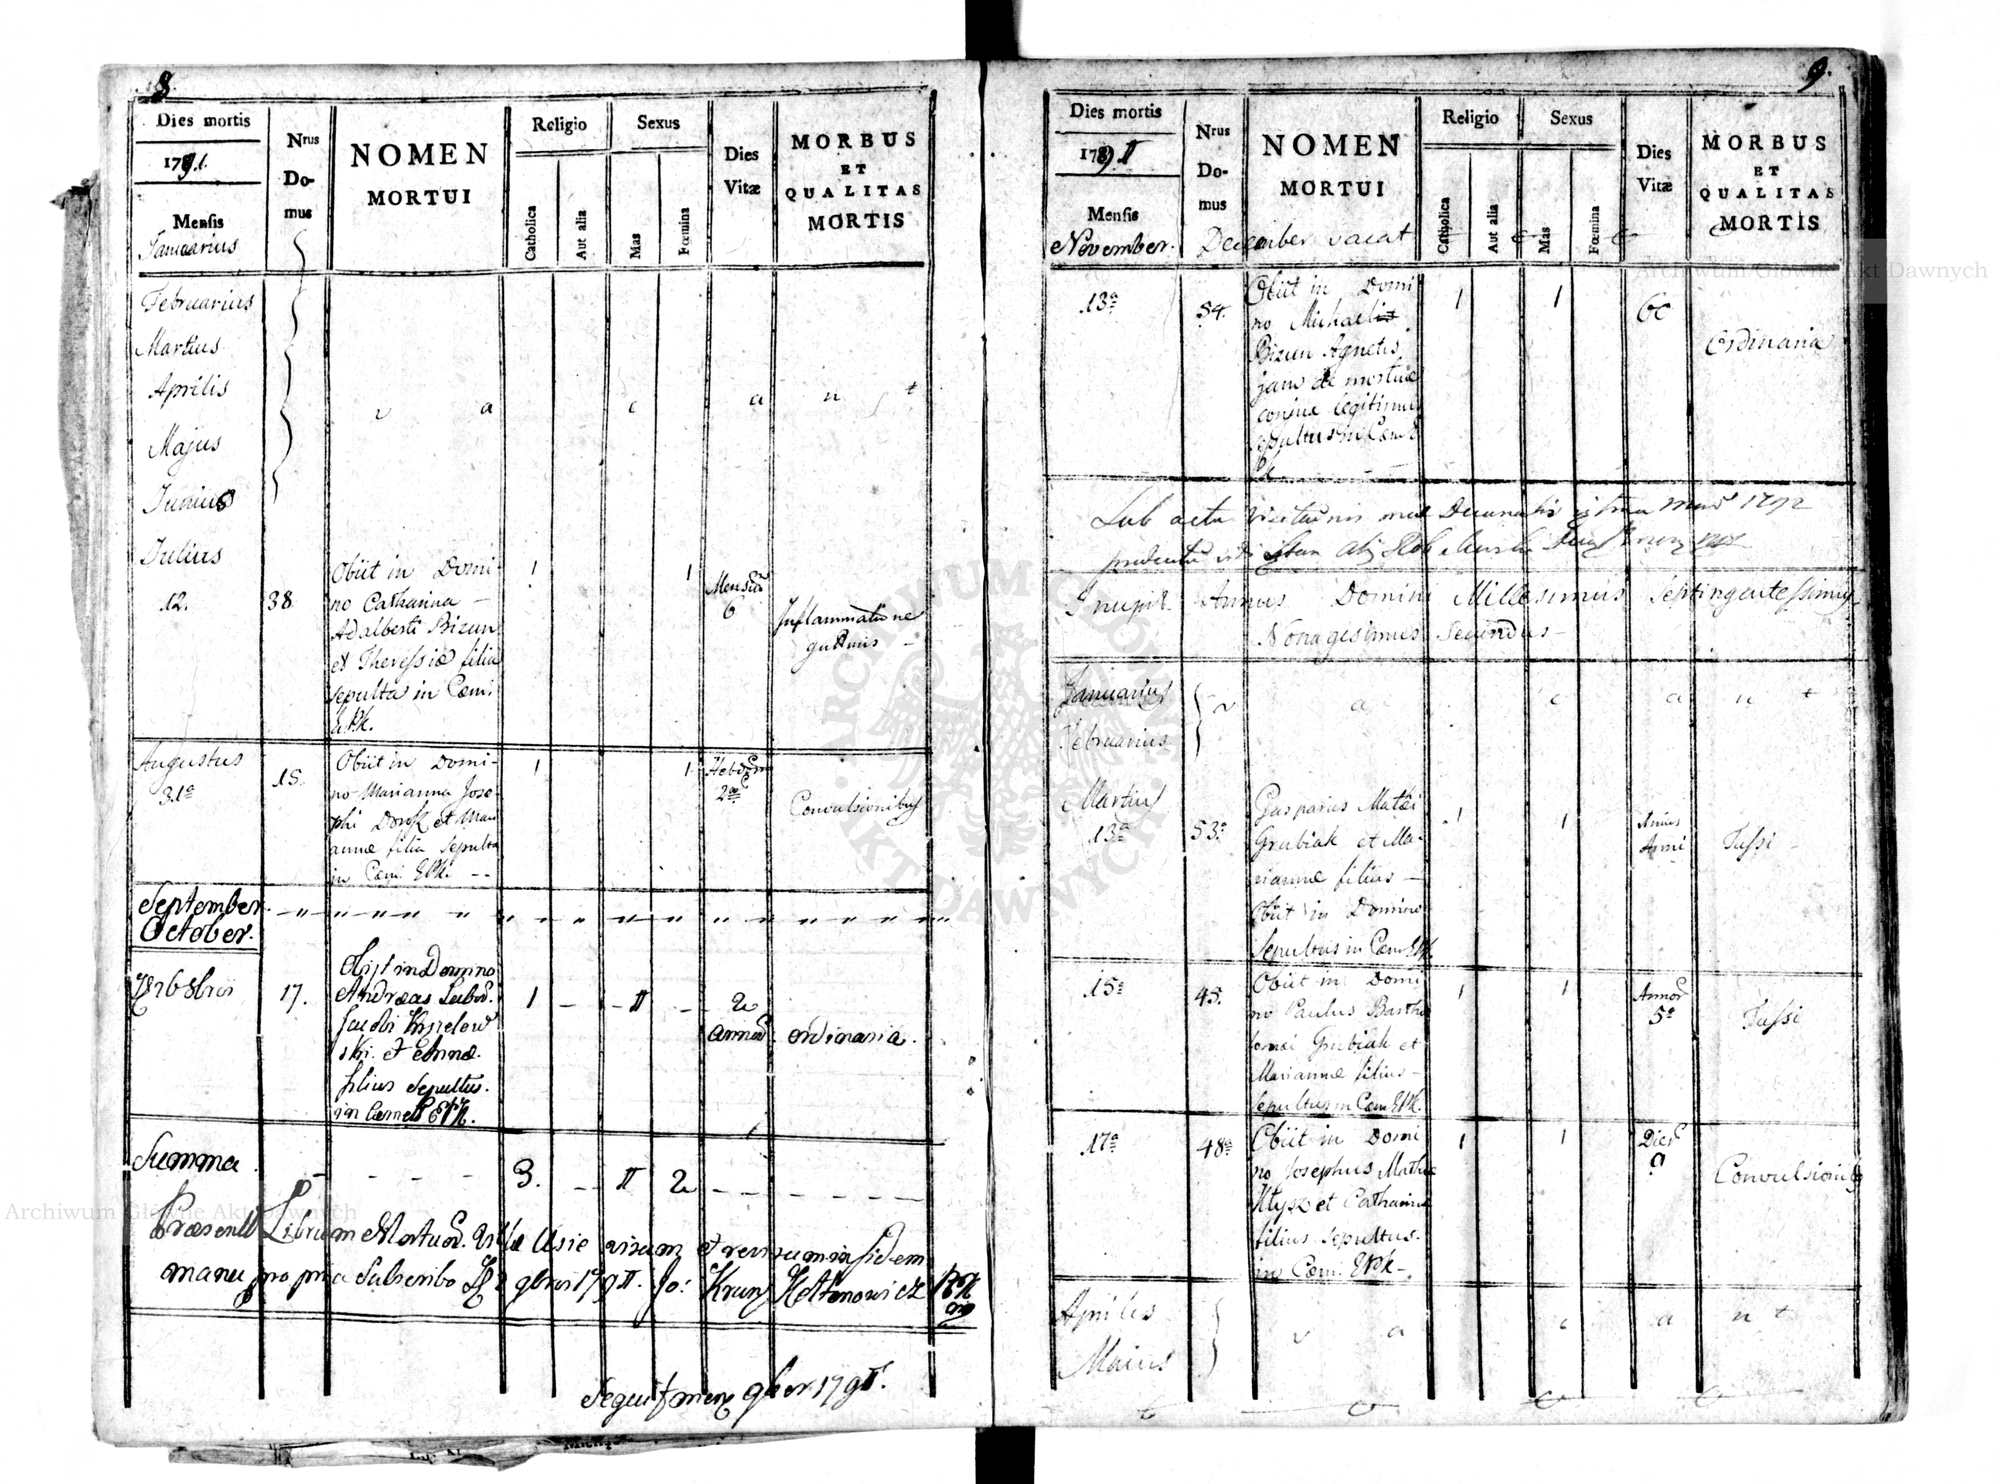 8.
Dies mortis
1791.
Mensis
Nrus
Do-
mus
NOMEN
MORTUI
Religio
Catholica
Aut alia
Sexus
Mas
Fœmina
Dies
Vitæ
MORBUS
ET
QUALITAS
MORTIS
Januarius
Februarius
Martius
Aprilis
v a c a n t
Majus
Junius
Julius
12. 38.
Obiit in Domi-
no Catharina -
Adalberti Bizun
et Theressiæ filia
sepulta in Cœmi
EPk.
1 1
Mensiū
6
Inflammatione
gutturis -
Augustus
31a 15.
Obiit in Domi-
no Marianna Jose-
phi et Mari
annæ filia sepulta
in Cœm: EPk: --
1 1
Hebdom
2æ
Convulsionibus
September.
October.
17.
Obijt in Domino
Andræas
Jacobi
ski. et Annæ.
filius Sepultus.
in Cœmet EPK.
1 - - II -
2
annor ordinaria.
Summa - - - - 3. - II 2 - - - - -
Præsentē Librum Mortuor. Villæ Usie visum et revisum in fidem
manu propria Subscribo 9bris 179II. Jo: Kruny
Sequit mens 9ber 179II.
9.
Dies mortis
179II
Mensis
Nrus
Do-
mus
NOMEN
MORTUI
Religio
Catholica
Aut alia
Sexus
Mas
Fœmina
Dies
Vitæ
MORBUS
ET
QUALITAS
MORTIS
November. December vacat
13a 54.
Obiit in Domi
no Michael
Bizun Agnetis
jam de mortuæ
conjux legitimus
sepultus in Cœm E
Pk
1 1 60
Ordinaria
Sub actu Visitationis meæ Decanalis 1792
Incipit Annus Domini Millesimus Septingentessimus
Nonagesimus Secundus -
Januarius
Februarius
v a c a n t
Martius
13a 53a
Gasparus Mathæi
Grubiak et Ma-
riannæ filius -
Obiit in Domino
Sepultus in Cœm EPk.
1 1
Tussi -
15a 45.
Obiit in Domi
no Paulus Bartho
lomæi Grubiak et
Mariannæ filius -
Sepultus in Cœm EPk.
1 1
Annor
5a
Tussi
17a 48a
Obiit in Domi
no Josephus Mathiæ
Klysz et Catharinæ
filius sepultus.
in Cœmi. EPk -
1 1
Dies
9
Convulsionib
Aprilis
Maius
v a c a n t
Archiwum Główne Akt Dawnych
Archiwum Główne Akt Dawnych
ARCHIWUM GŁÓWNE
AKT DAWNYCH